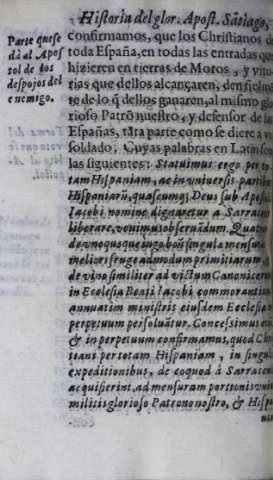 Historia del glor. Apost. Sātiago,
Parte que se
dà al Apos
tol de los
despojos del
enemigo.
confirmamos, que los Christianos de
toda España, en todas las entradas que
hizieren en tierras de Moros, y vito
rias que dellos alcançaren, den fielmē
te de lo q̃ dellos ganaren, al mismo glo
rioso Patrō nuestro, y defensor de las
Españas, tāta parte como se diere a vn
soldado, Cuyas palabras en Latin son
las siguientes: Statuimus ergo per to-
tam Hispaniam, ac in vniuersis partibus
Hispaniarū, quascumq; Deus sub Apostoli
Iacobi nomine dignaretur a Sarracenis
liberare, vouimus obseruādum. Quatenus
de vnoquoque iugo boū singulæ mensuræ de
meliori fruge ad modum primitiarum, &
de vino similiter ad victum Canonicorum
in Ecclesia Beati Iacobi commorantium
annuatim ministris eiusdem Ecclesiæ in
perpetuum persoluatur. Concessimus etiam
& in perpetuum confirmamus, quod Chris
tiani per totam Hispaniam, in singulis
expeditionibus, de eo quod à Sarracenis
acquisierint, ad mensuram portionis vnius
militis glorioso Patrono nostro, & Hispa